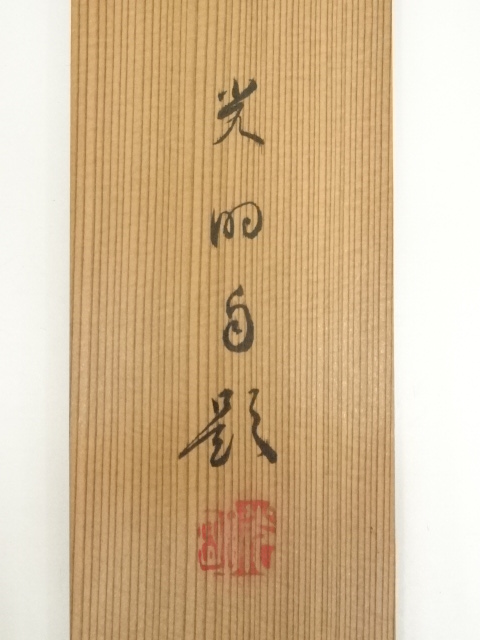 光明自題